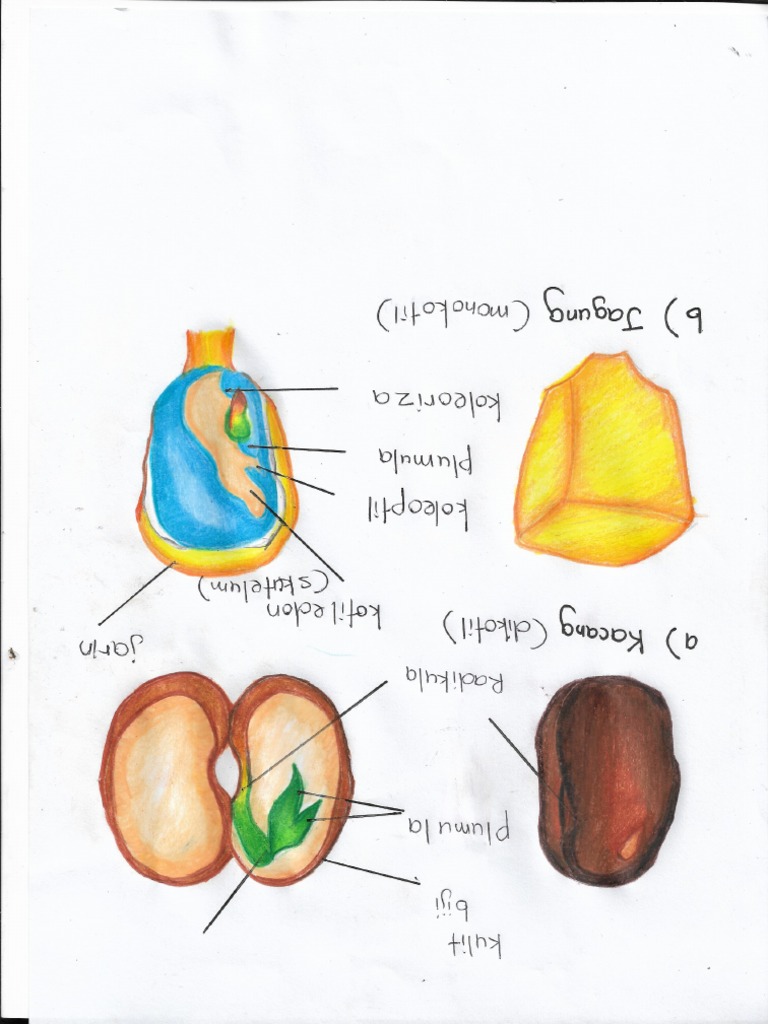 kulit
biji
plumula
Radikula
a) Kacang (dikotil)
jarin
kotiledon
(skutelum)
koleoptil
plumula
koleoriza
b) Jagung (monokotil)